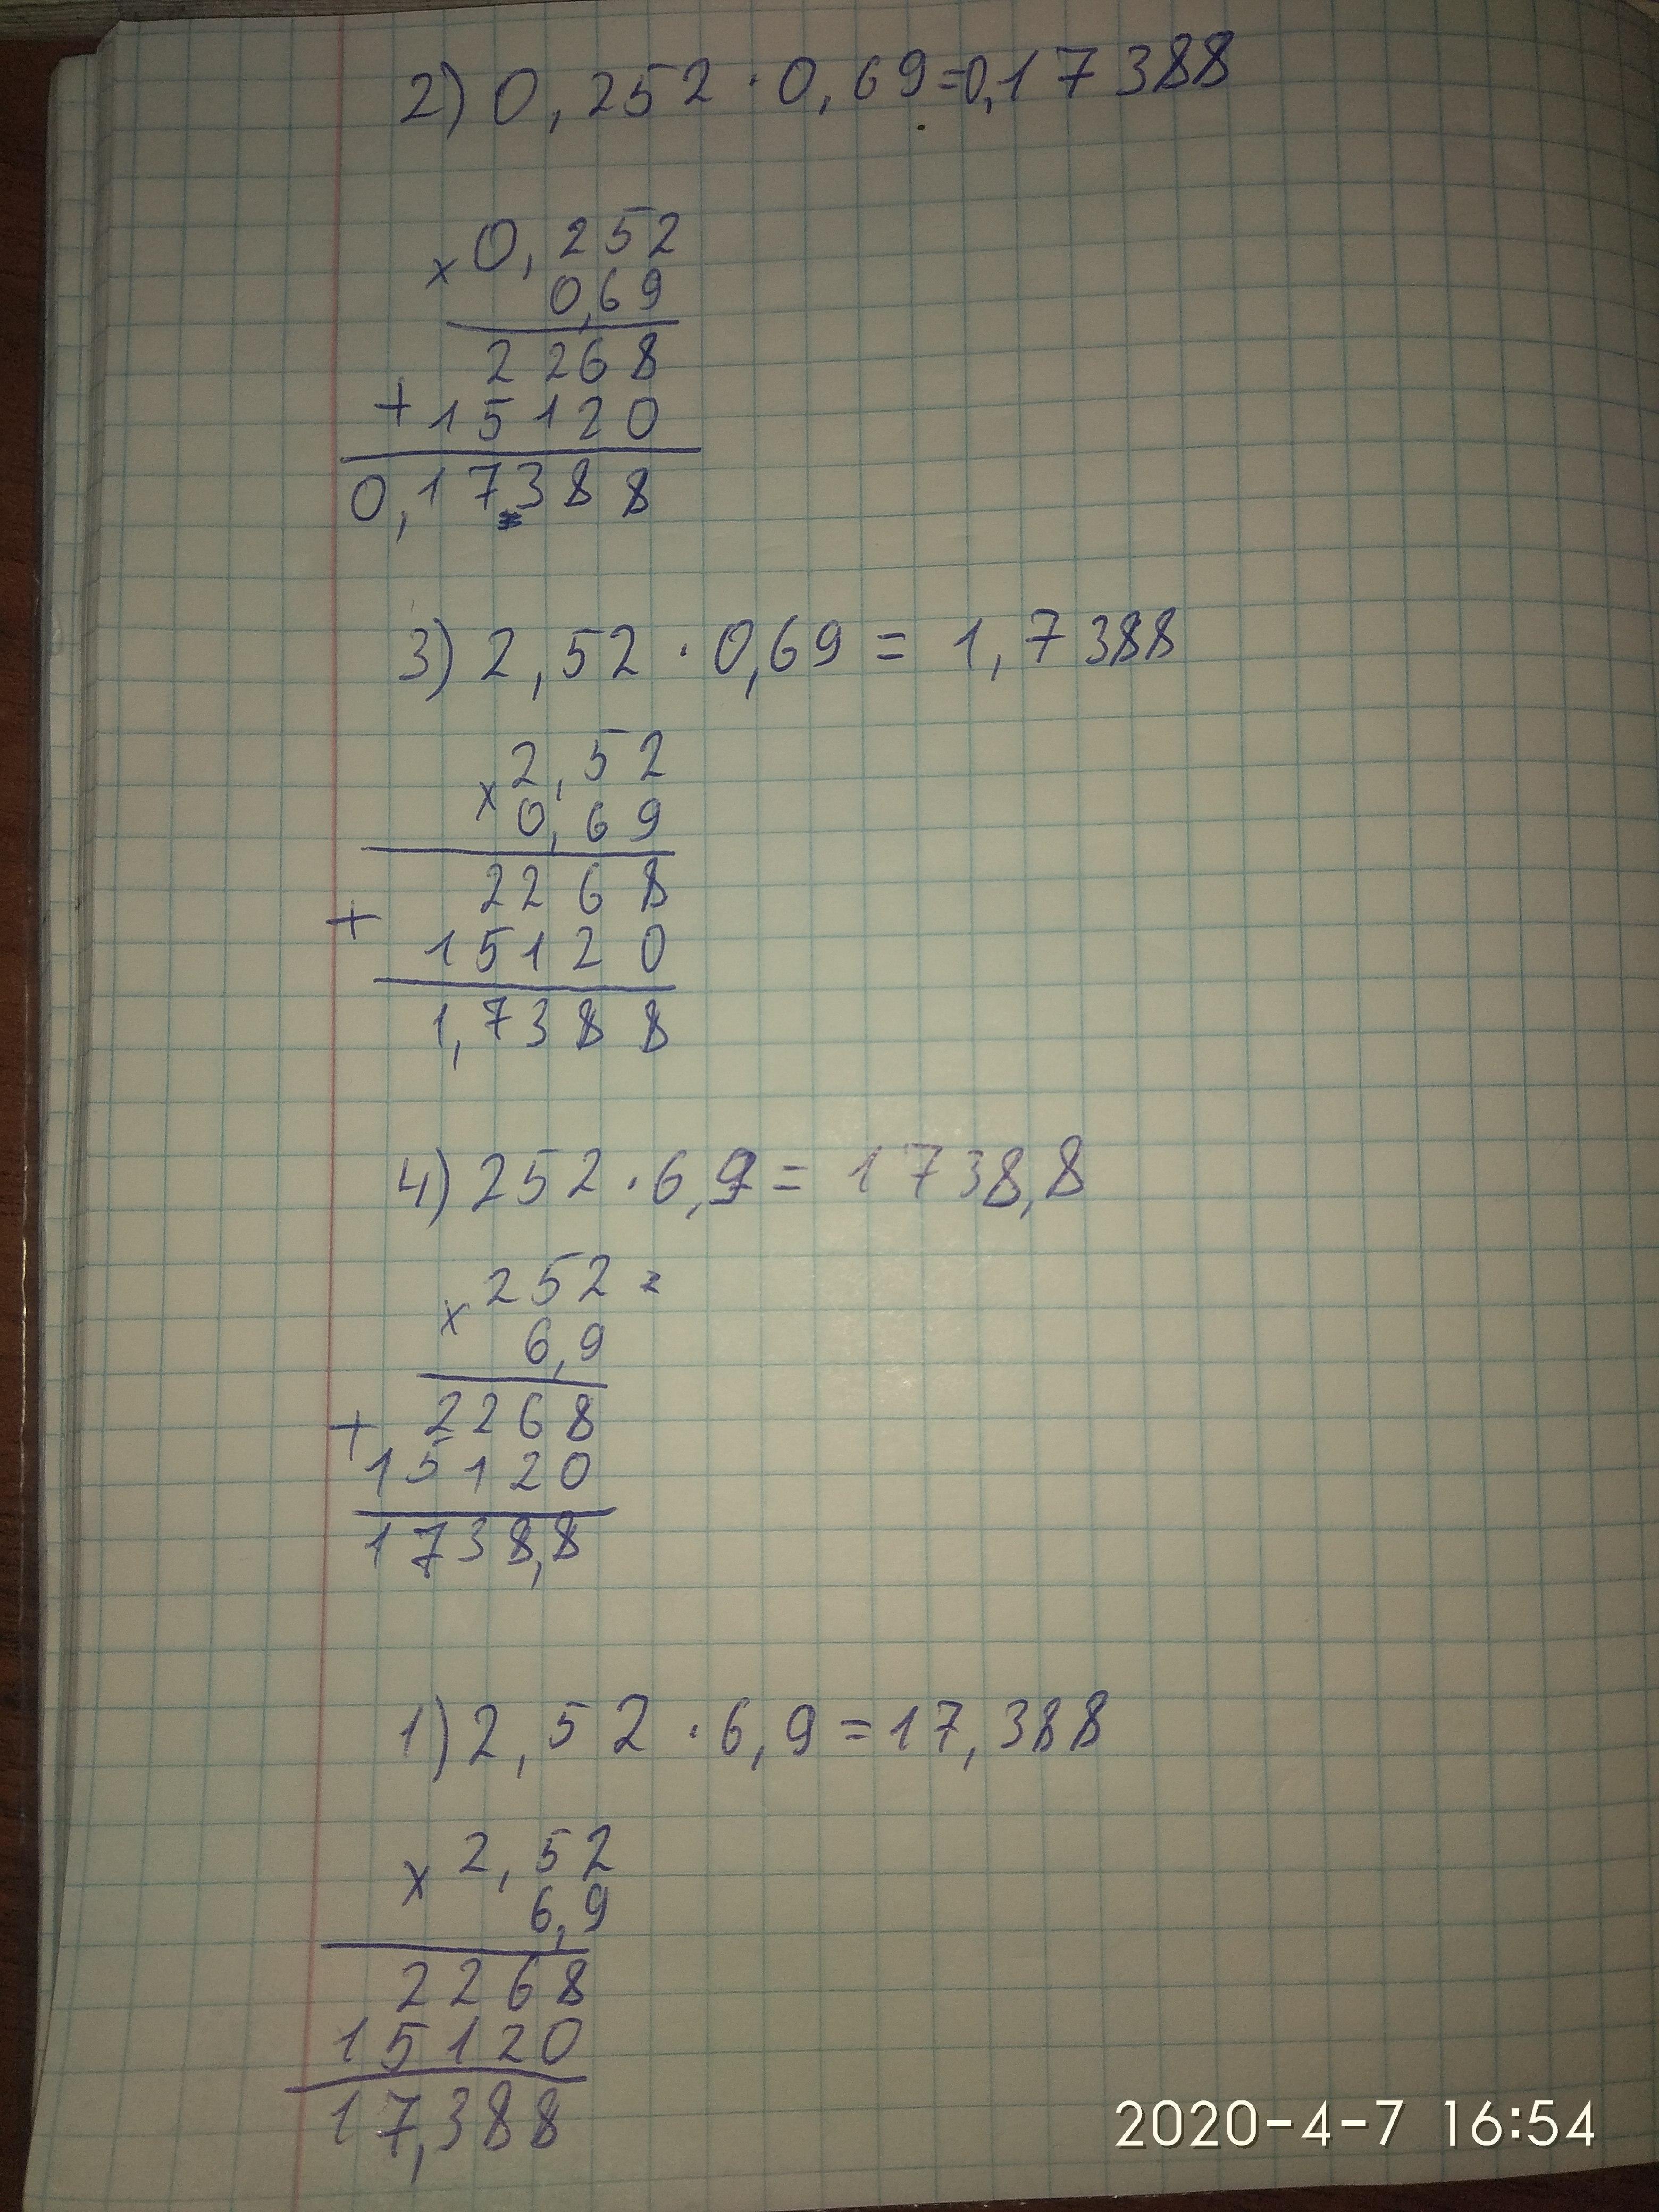 2) 0,252 · 0,69 = 0,17388
× 0,252
0,69
2268
+ 15120
0,17388
3) 2,52 · 0,69 = 1,7388
× 2,52
0,69
2268
+
15120
1,7388
4) 252 · 6,9 = 1738,8
× 252
6,9
2268
+
15120
1738,8
1) 2,52 · 6,9 = 17,388
× 2,52
6,9
2268
15120
17,388
2020-4-7 16:54